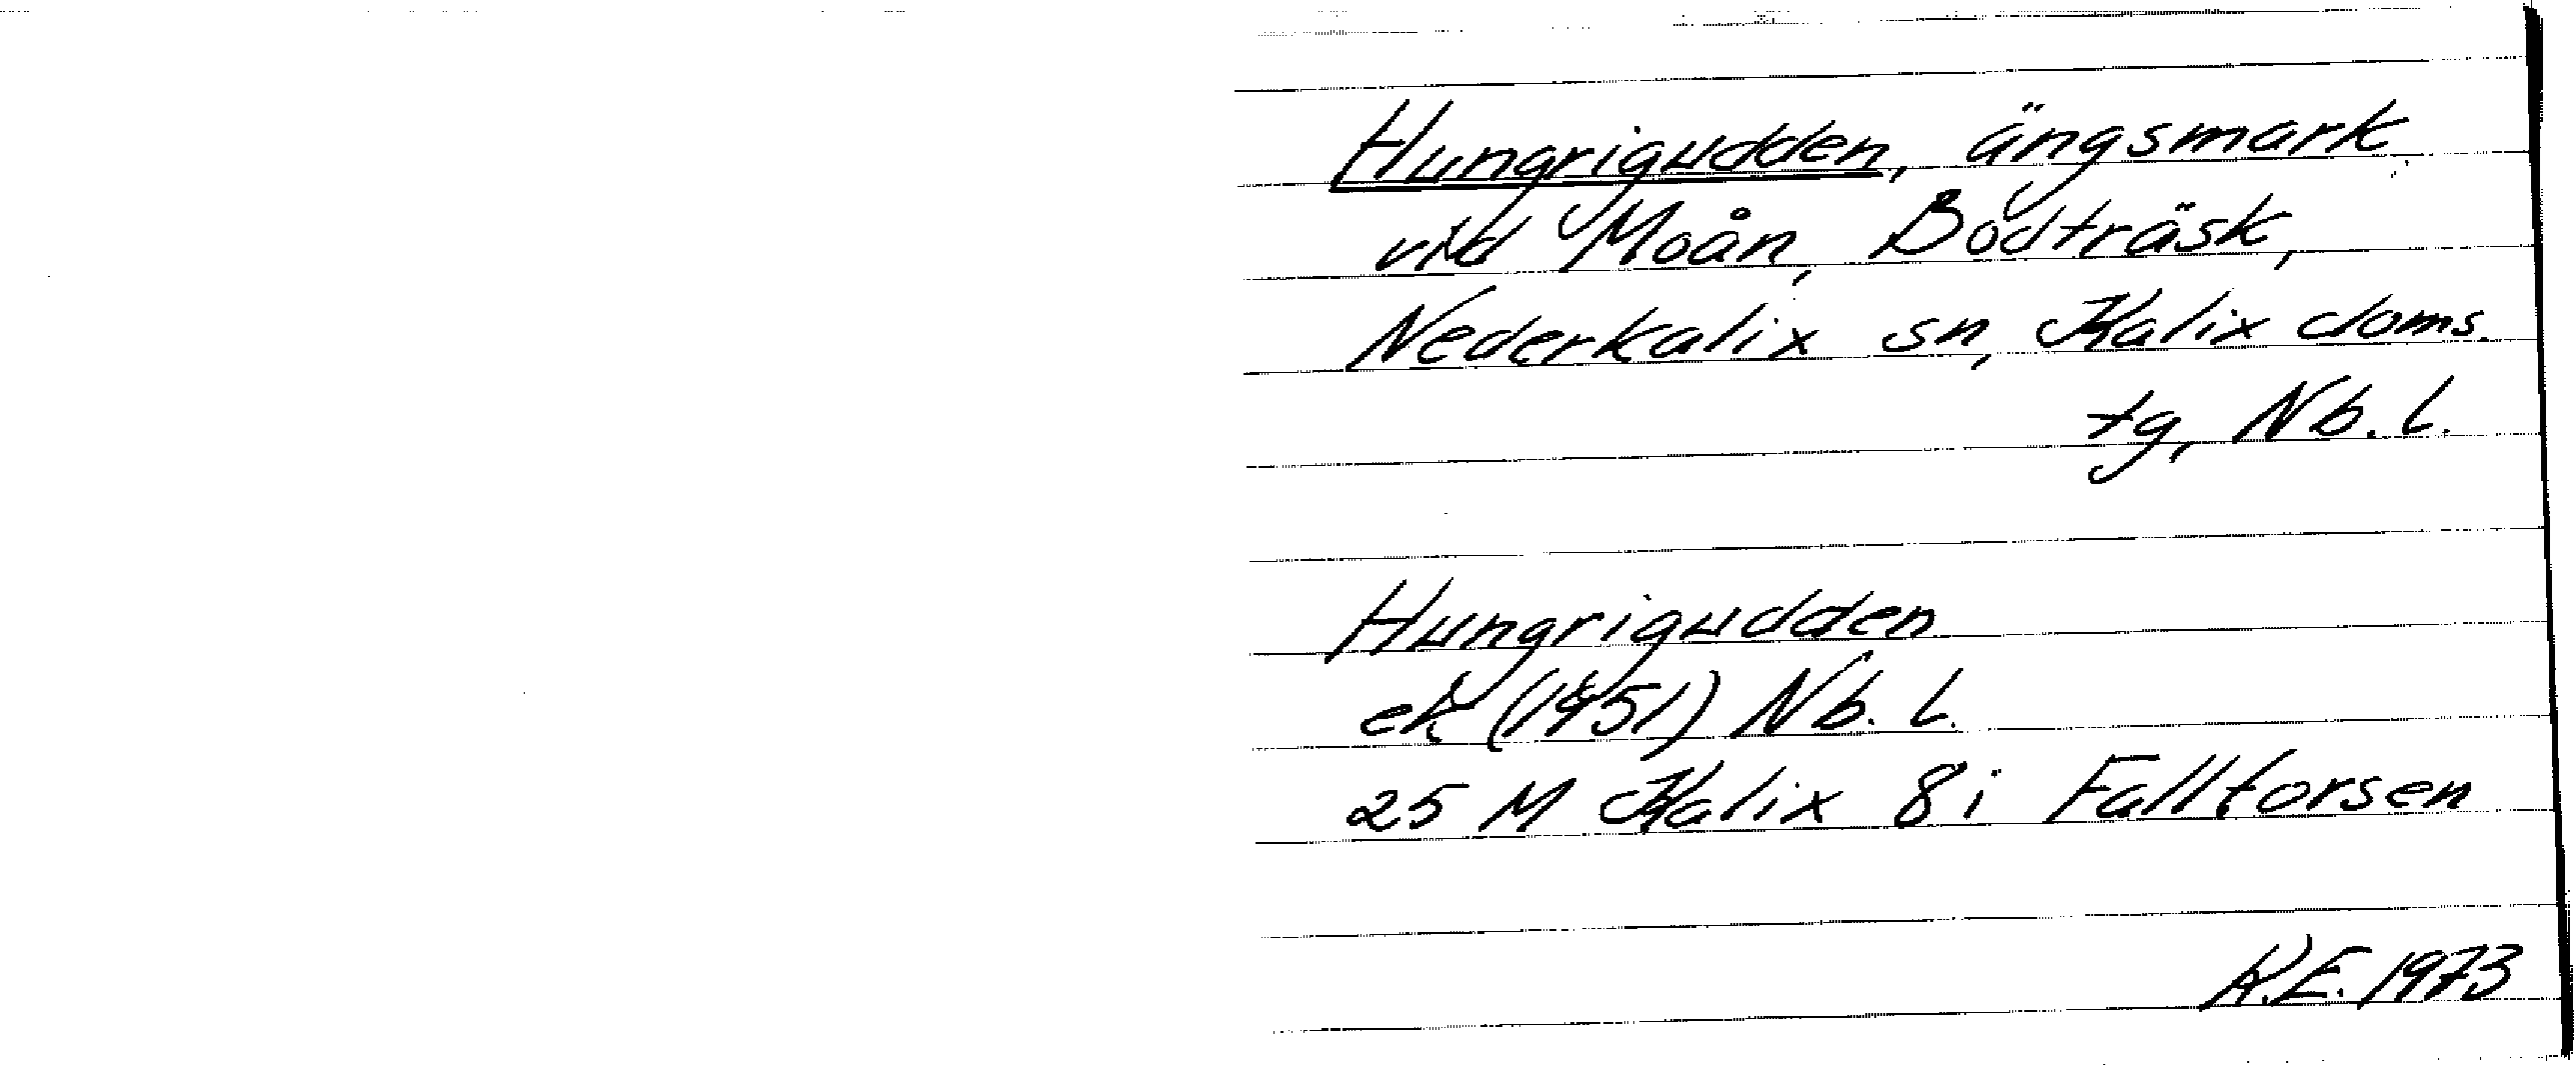 Hungrigudden, ängsmark
vid Moån, Bodträsk,
Nederkalix sn, Kalix doms.
tg, Nb. l.
Hungrigudden
ek (1951) Nb. l.
25 M Kalix 8i Fallforsen
K.E. 1973